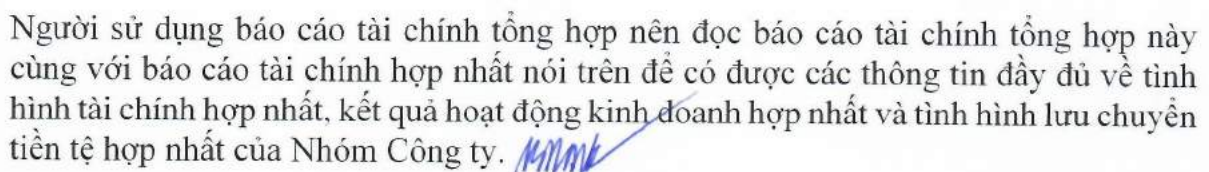 Người sử dụng báo cáo tài chính tổng hợp nên đọc báo cáo tài chính tổng hợp này
cùng với báo cáo tài chính hợp nhất nói trên để có được các thông tin đầy đủ về tình
hình tài chính hợp nhất, kết quả hoạt động kinh doanh hợp nhất và tình hình lưu chuyển
tiền tệ hợp nhất của Nhóm Công ty.